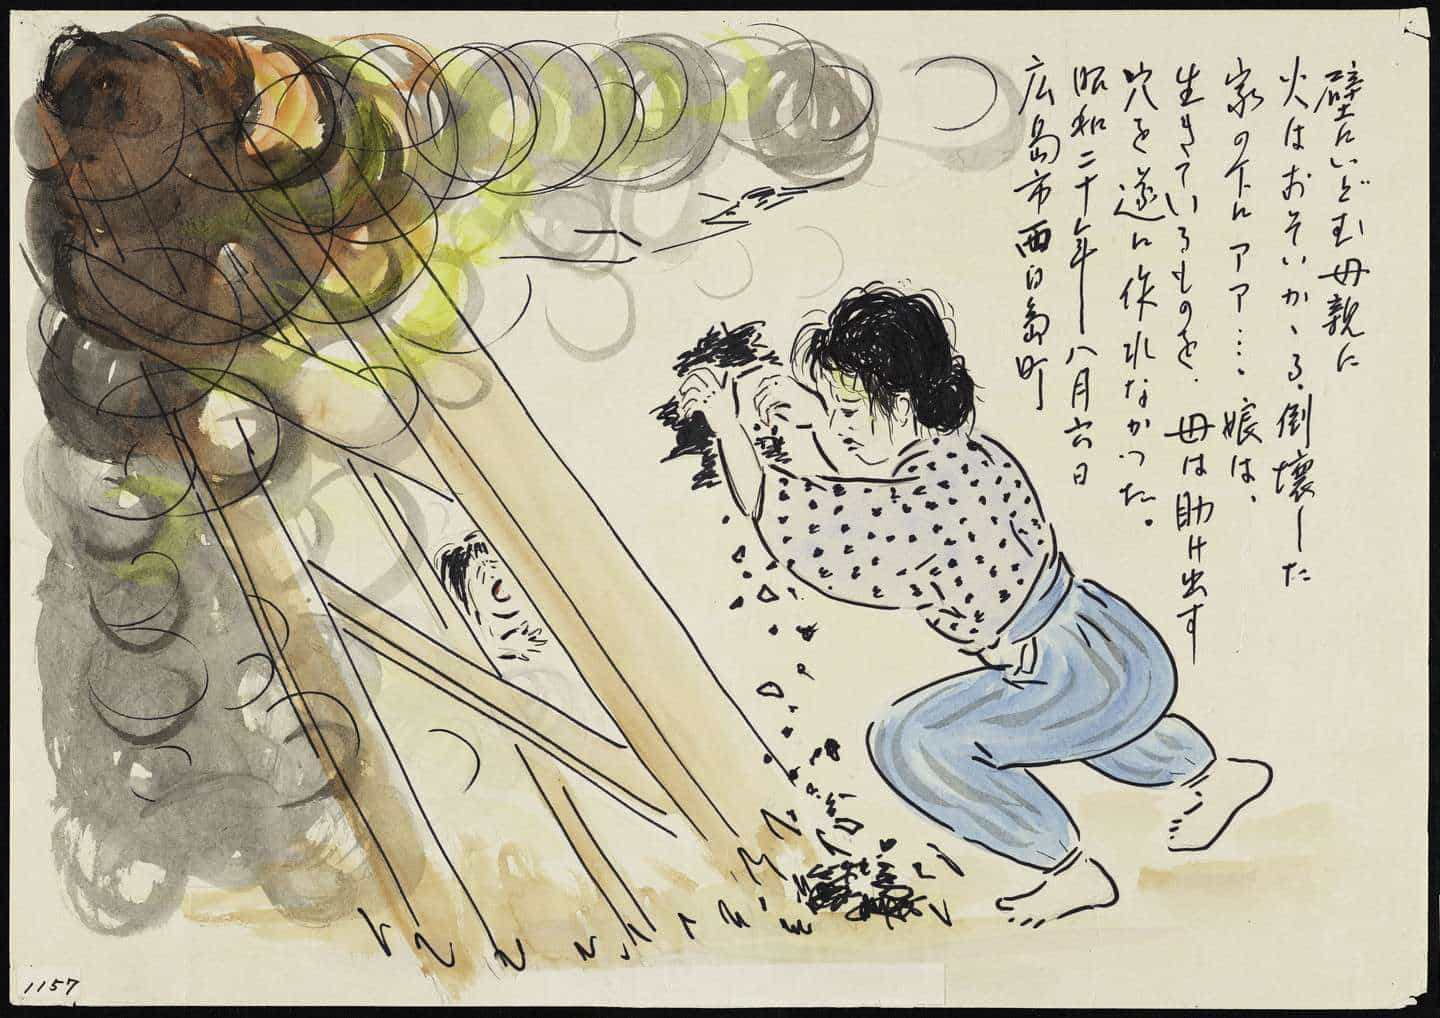 壁にいどむ母親に
火はおそいかゝる、倒壊した
家の下に アア…、娘は、
生きているものを、母は助け出す
穴を遂に作れなかった。
昭和二十年八月六日
広島市西白島町
1157